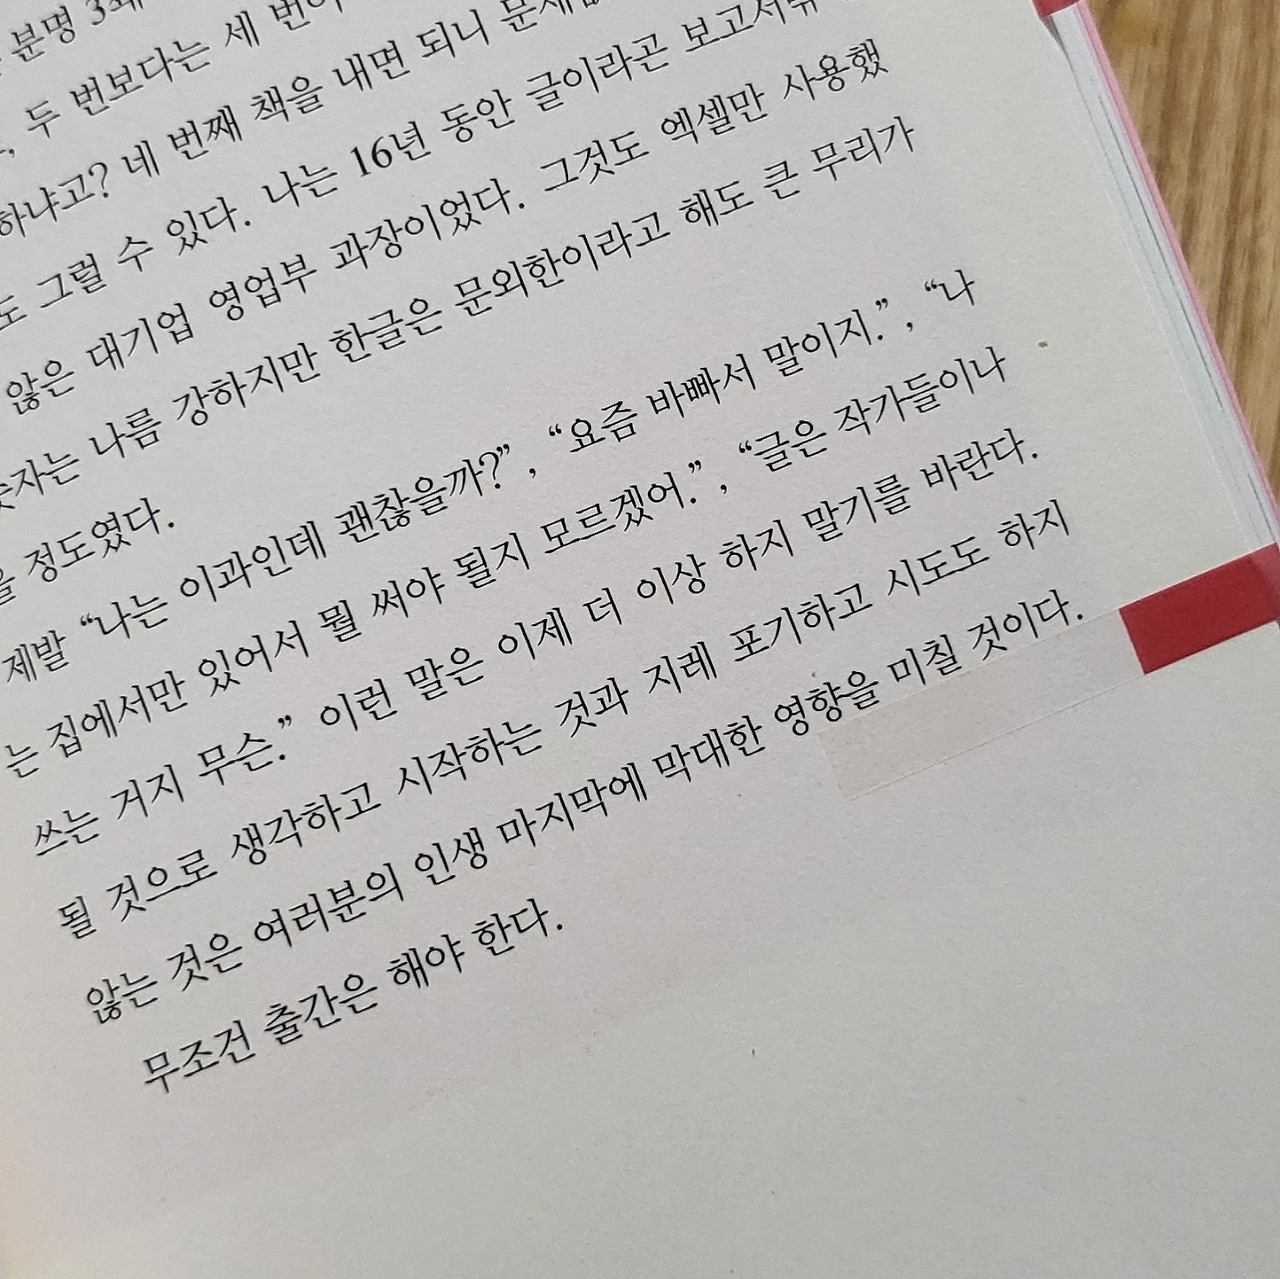 분명
두 번보다는 세 번이
하냐고? 네 번째 책을 내면 되니
도 그럴 수 있다. 나는 16년 동안 글이라곤 보고서밖
않은 대기업 영업부 과장이었다. 그것도 엑셀만 사용했
숫자는 나름 강하지만 한글은 문외한이라고 해도 큰 무리가
을 정도였다.
제발 “나는 이과인데 괜찮을까?”, “요즘 바빠서 말이지.”, “나
는 집에서만 있어서 뭘 써야 될지 모르겠어.”, “글은 작가들이나
쓰는 거지 무슨.” 이런 말은 이제 더 이상 하지 말기를 바란다.
될 것으로 생각하고 시작하는 것과 지레 포기하고 시도도 하지
않는 것은 여러분의 인생 마지막에 막대한 영향을 미칠 것이다.
무조건 출간은 해야 한다.